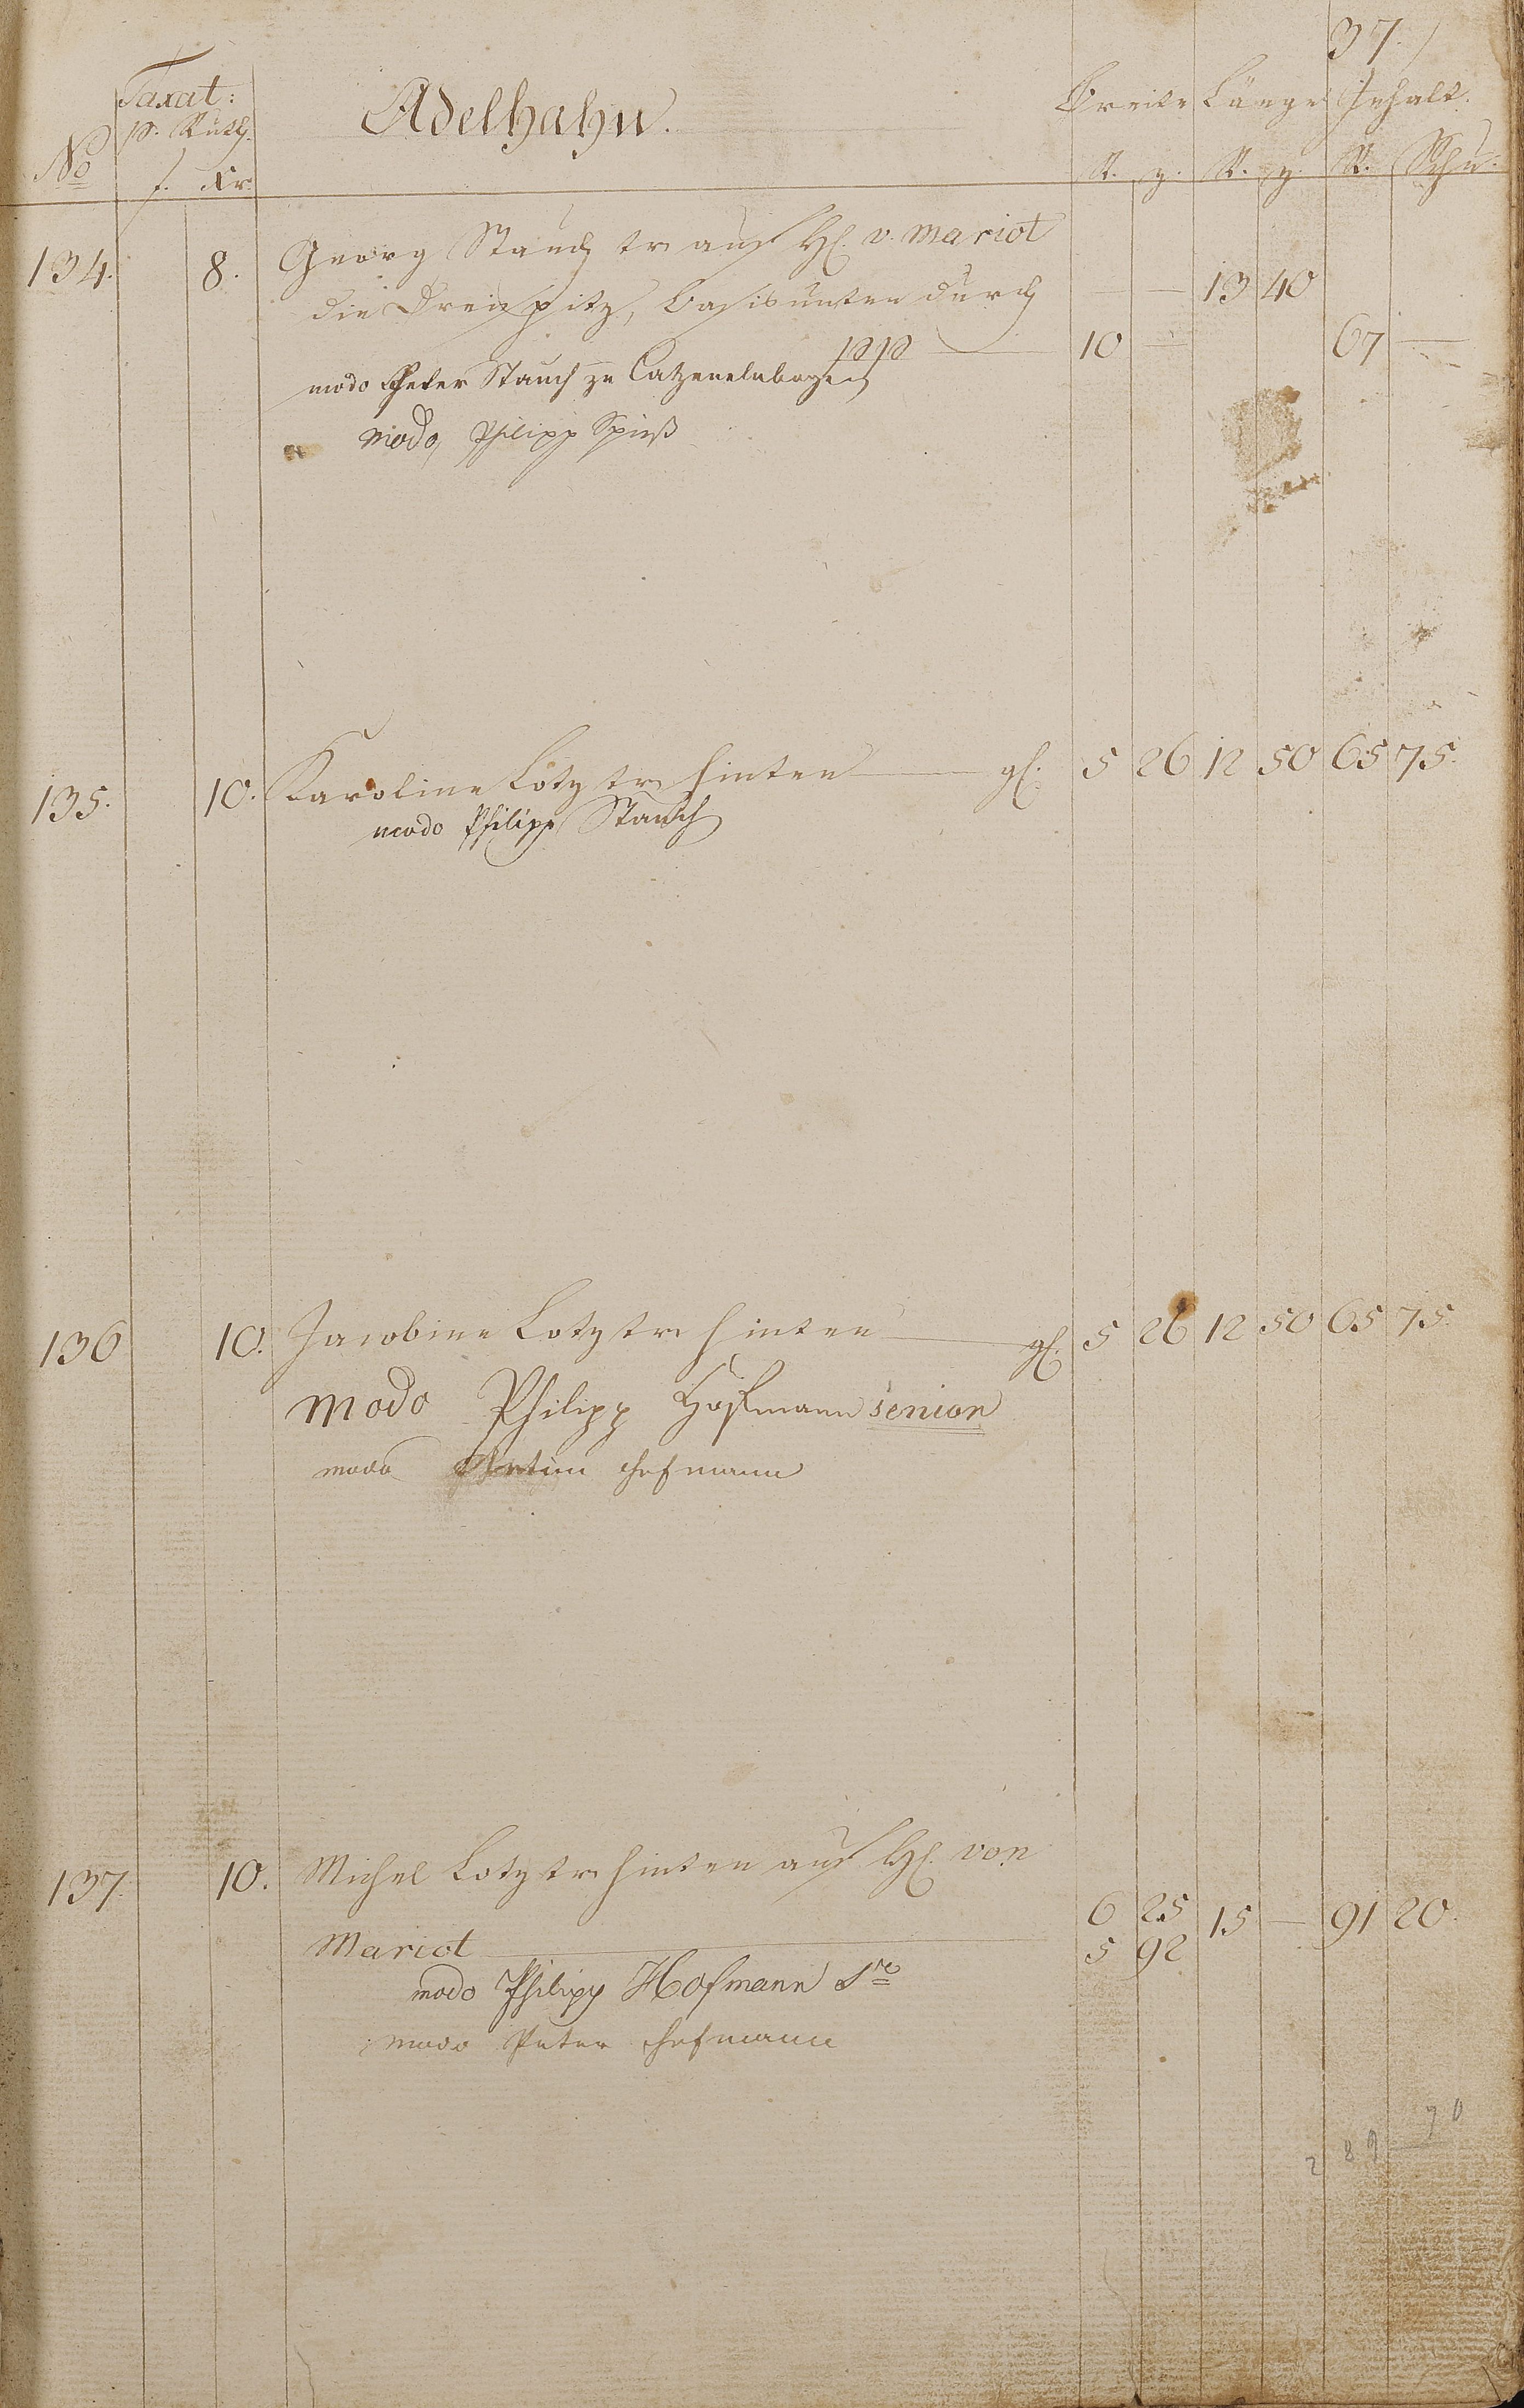 37.
Taxat: Adelhahn. Breite Länge Inhalt.
p. Ruth.
No f. Xr. R. z. R. z. R. Schu.
134. 8. Georg Stauch tr. auf H. v. Mariot
die Dreispitz, basis unten durch — — 13 40
ppp 10 — 67 —
modo Peter Stauch zu Catzenelnbogen
modo, Philipp Spieß
135. 10. Karoline Lotz tr hinten gl. 5 26 12 50 65 75.
modo Philipp Stauch
136 10. Jacobine Lotz tr hinten gl. 5 26 12 50 65 75.
Modo Philipp Hofmann senior
modo Anton Hofmann
137. 10. Michel Lotz tr hinten auf H. von
Mariot 6 25 15 — 91 20.
5 92
modo Philipp Hofmann Sr
modo Peter Hofmann
289 70